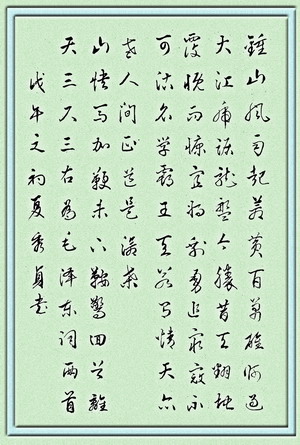 鍾山風雨起蒼黃百萬雄師過
大江虎踞龍盤今勝昔天翻地
覆慨而慷宜將剩勇追窮寇不
可沽名學霸王天若有情天亦
老人間正道是滄桑
山快馬加鞭未下鞍驚回首離
天三尺三右為毛澤東詞兩首
戊午之初夏秀貞書